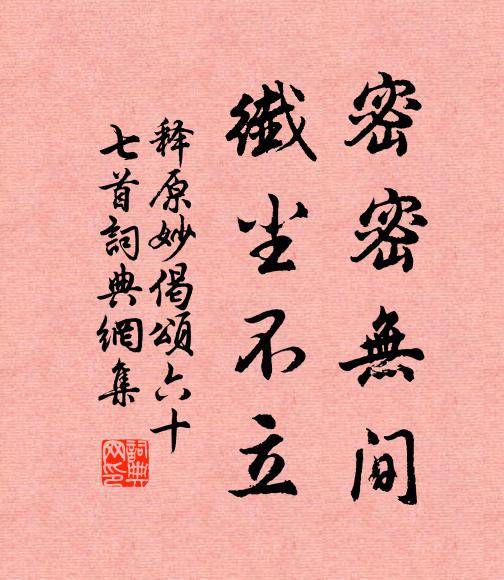 密密無间
纖尘不立
释原妙偈頌六十
七首詞典網集
詞典網印